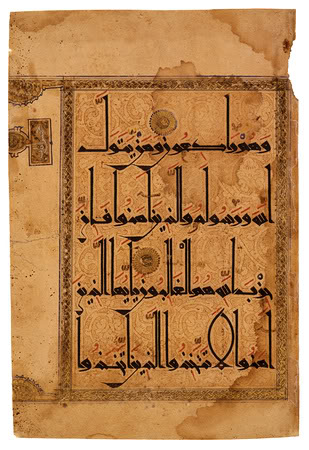 وهم ركعون ومن يتول
الله ورسوله والذين امنوا فان
حزب الله هم الغالبون يايها الذين
امنوا لا تتخذوا الذين اتخذوا